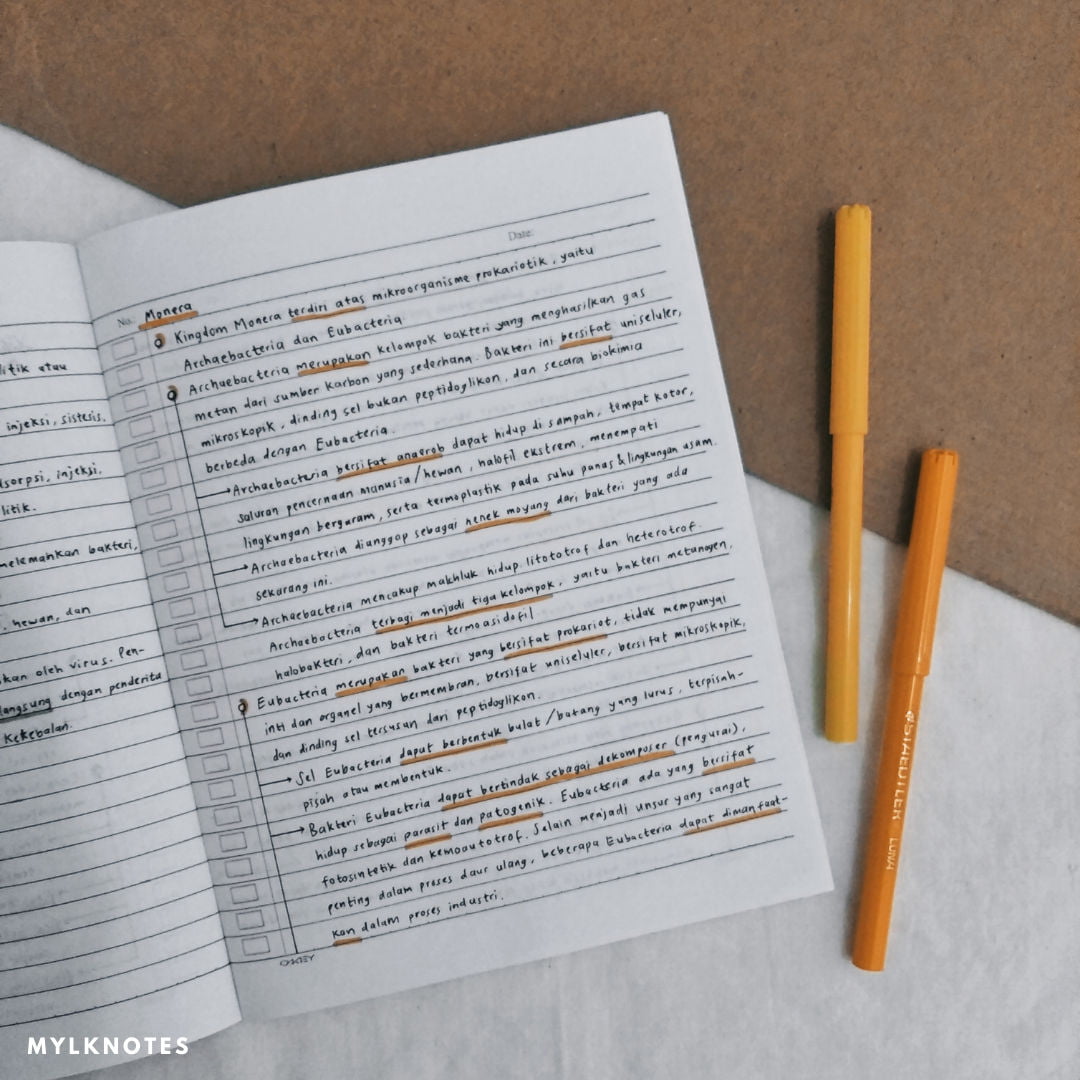 itik atau
injeksi, sistesis.
dsorpsi, injeksi,
litik.
melemahkan bakteri,
, hewan, dan
kan oleh virus. Pen-
langsung dengan penderita
kekebalan.
Date:
No: Monera
Kingdom Monera terdiri atas mikroorganisme prokariotik, yaitu
Archaebacteria dan Eubacteria
Archaebacteria merupakan kelompok bakteri yang menghasilkan gas
metan dari sumber karbon yang sederhana. Bakteri ini bersifat uniseluler,
mikroskopik, dinding sel bukan peptidoglikon, dan secara biokimia
berbeda dengan Eubacteria.
Archaebacteria bersifat anaerob dapat hidup di sampah, tempat kotor,
saluran pencernaan manusia/hewan, halofil ekstrem, menempati
lingkungan bergaram, serta termoplastik pada suhu panas & lingkungan asam.
Archaebacteria dianggap sebagai nenek moyang dari bakteri yang ada
sekarang ini.
Archaebacteria mencakup makhluk hidup litototrof dan heterotrof.
Archaebacteria terbagi menjadi tiga kelompok, yaitu bakteri metanogen,
halobakteri, dan bakteri termoasidofil
Eubacteria merupakan bakteri yang bersifat prokariot, tidak mempunyai
inti dan organel yang bermembran, bersifat uniseluler, bersifat mikroskopik,
dan dinding sel tersusun dari peptidoglikon.
Sel Eubacteria dapat berbentuk bulat/batang yang lurus, terpisah-
pisah atau membentuk.
Bakteri Eubacteria dapat bertindak sebagai dekomposer (pengurai),
hidup sebagai parasit dan patogenik. Eubacteria ada yang bersifat
fotosintetik dan kemoautotrof. Selain menjadi unsur yang sangat
penting dalam proses daur ulang, beberapa Eubacteria dapat dimanfaat-
kan dalam proses industri.
OKEY
STAEDTLER LUNA
MYLKNOTES